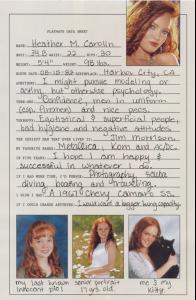 PLAYMATE DATA SHEET
NAME: Heather M. Carolin
BUST: 34B WAIST: 22 HIPS: 30
HEIGHT: 5'4" WEIGHT: 98 lbs.
BIRTH DATE: BIRTHPLACE: Harbor City, CA
AMBITIONS: I might pursue modeling or
acting, but otherwise psychology.
TURN-ONS: Confidence, men in uniform
(esp. firemen) and nice pecs.
TURNOFFS: Egotistical & superficial people,
bad hygiene and negative attitudes.
THE SEXIEST MAN THAT EVER LIVED IS: Jim Morrison.
MY FAVORITE BANDS: Metallica, Korn and AC/DC.
IN FIVE YEARS: I hope I am happy &
successful in whatever I do.
IF I HAD MORE TIME, I'D PURSUE: Photography, scuba
diving, boating and traveling.
I WISH I HAD: A 1967 Chevy Camaro SS.
IF I COULD CHANGE ANYTHING: I would have a bigger lung capacity.
my last known
innocent pic!
senior portrait
17 yrs. old.
me & my
kitty.